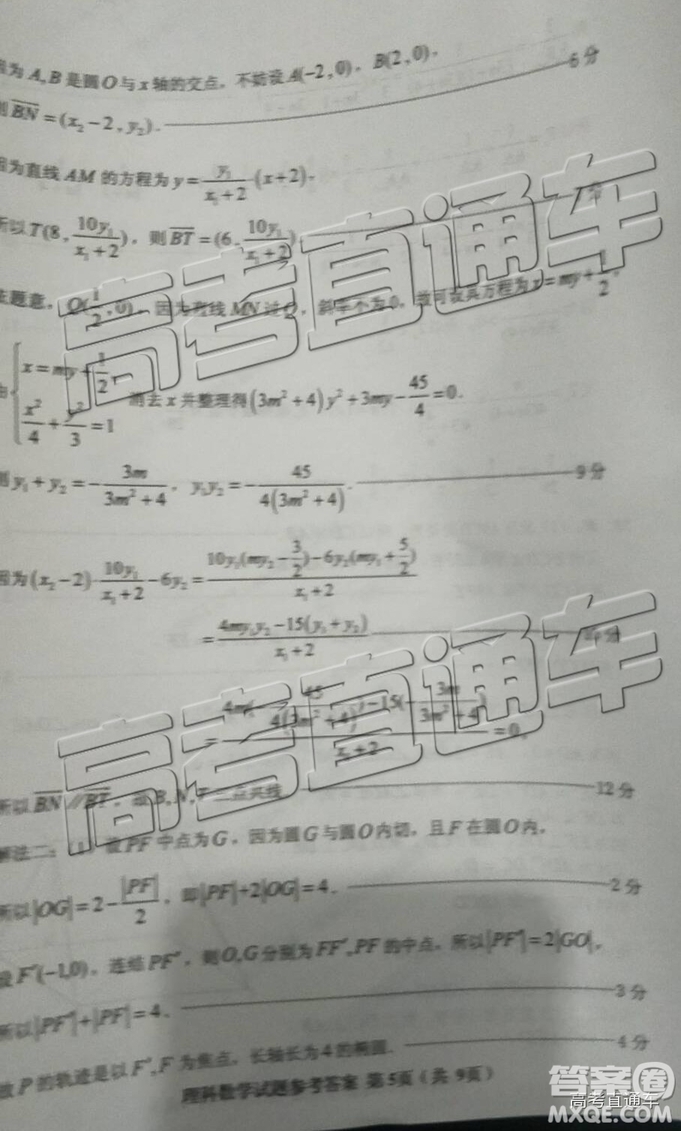 因为 A, B 是圆 O 与 x 轴的交点，不妨设 A(-2, 0)，B(2, 0)，
则 \overline{BN} = (x₂-2, y₂). 6分
因为直线 AM 的方程为 y = \frac{y₁}{x₁+2}(x+2)，
所以 T(8, \frac{10y₁}{x₁+2})，则 \overline{BT} = (6, \frac{10y₁}{x₁+2})
主题意，Q(\frac{1}{2}, 0)，因为直线 MN 过 Q，斜率不为 0，故可设其方程为 x = my + \frac{1}{2}，
由 \begin{cases} x = my + \frac{1}{2}, \\ \frac{x^2}{4} + \frac{y^2}{3} = 1 \end{cases} 消去 x 并整理得 (3m²+4)y² + 3my - \frac{45}{4} = 0.
则 y₁+y₂ = -\frac{3m}{3m²+4}，y₁y₂ = -\frac{45}{4(3m²+4)}. 9分
因为 (x₂-2)·\frac{10y₁}{x₁+2} - 6y₂ = \frac{10y₁(my₂-\frac{3}{2})-6y₂(my₁+\frac{5}{2})}{x₁+2}
= \frac{4my₁y₂-15(y₁+y₂)}{x₁+2}
= \frac{4m(-\frac{45}{4(3m²+4)})-15(-\frac{3m}{3m²+4})}{x₁+2} = 0,
所以 \overline{BN} // \overline{BT}，故 B, N, T 三点共线. 12分
解法二：（1）设 PF 中点为 G，因为圆 G 与圆 O 内切，且 F 在圆 O 内，
所以 |OG| = 2 - \frac{|PF|}{2}，即 |PF|+2|OG| = 4. 2分
设 F′(-1,0)，连结 PF′，则 O, G 分别为 FF′, PF 的中点，所以 |PF′| = 2|GO|，
所以 |PF′|+|PF| = 4. 3分
故 P 的轨迹是以 F′, F 为焦点，长轴长为 4 的椭圆. 4分
理科数学试题参考答案 第5页（共 9页）
高考直通车
高考直通车
答案卷
高考直通车
MXQE.COM